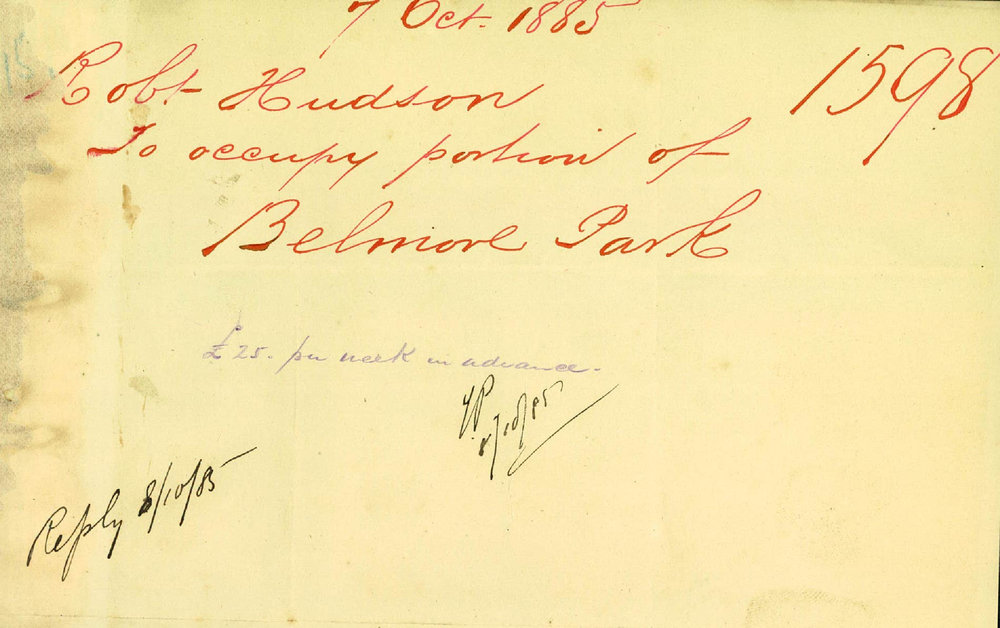 7 Oct. 1885
Robt Hudson
1598
To occupy portion of
Belmore Park
£25. per week in advance.
8/10/85
Reply 8/10/85